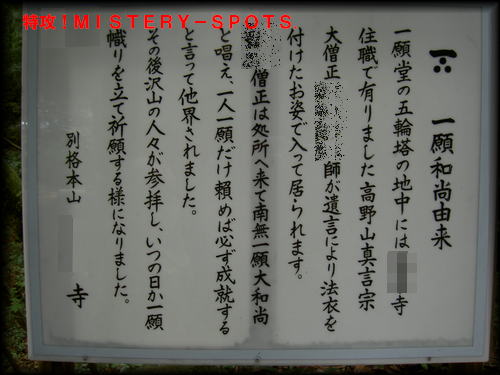 特攻！ＭＩＳＴＥＲＹ－ＳＰＯＴＳ
一願和尚由来
一願堂の五輪塔の地中には寺
住職で有りました高野山真言宗
大僧正師が遺言により法衣を
付けたお姿で入って居られます。
僧正は処所へ来て南無一願大和尚
と唱え、一人一願だけ頼めば必ず成就する
と言って他界されました。
その後沢山の人々が参拝し、いつの日か一願
幟りを立て祈願する様になりました。
別格本山寺